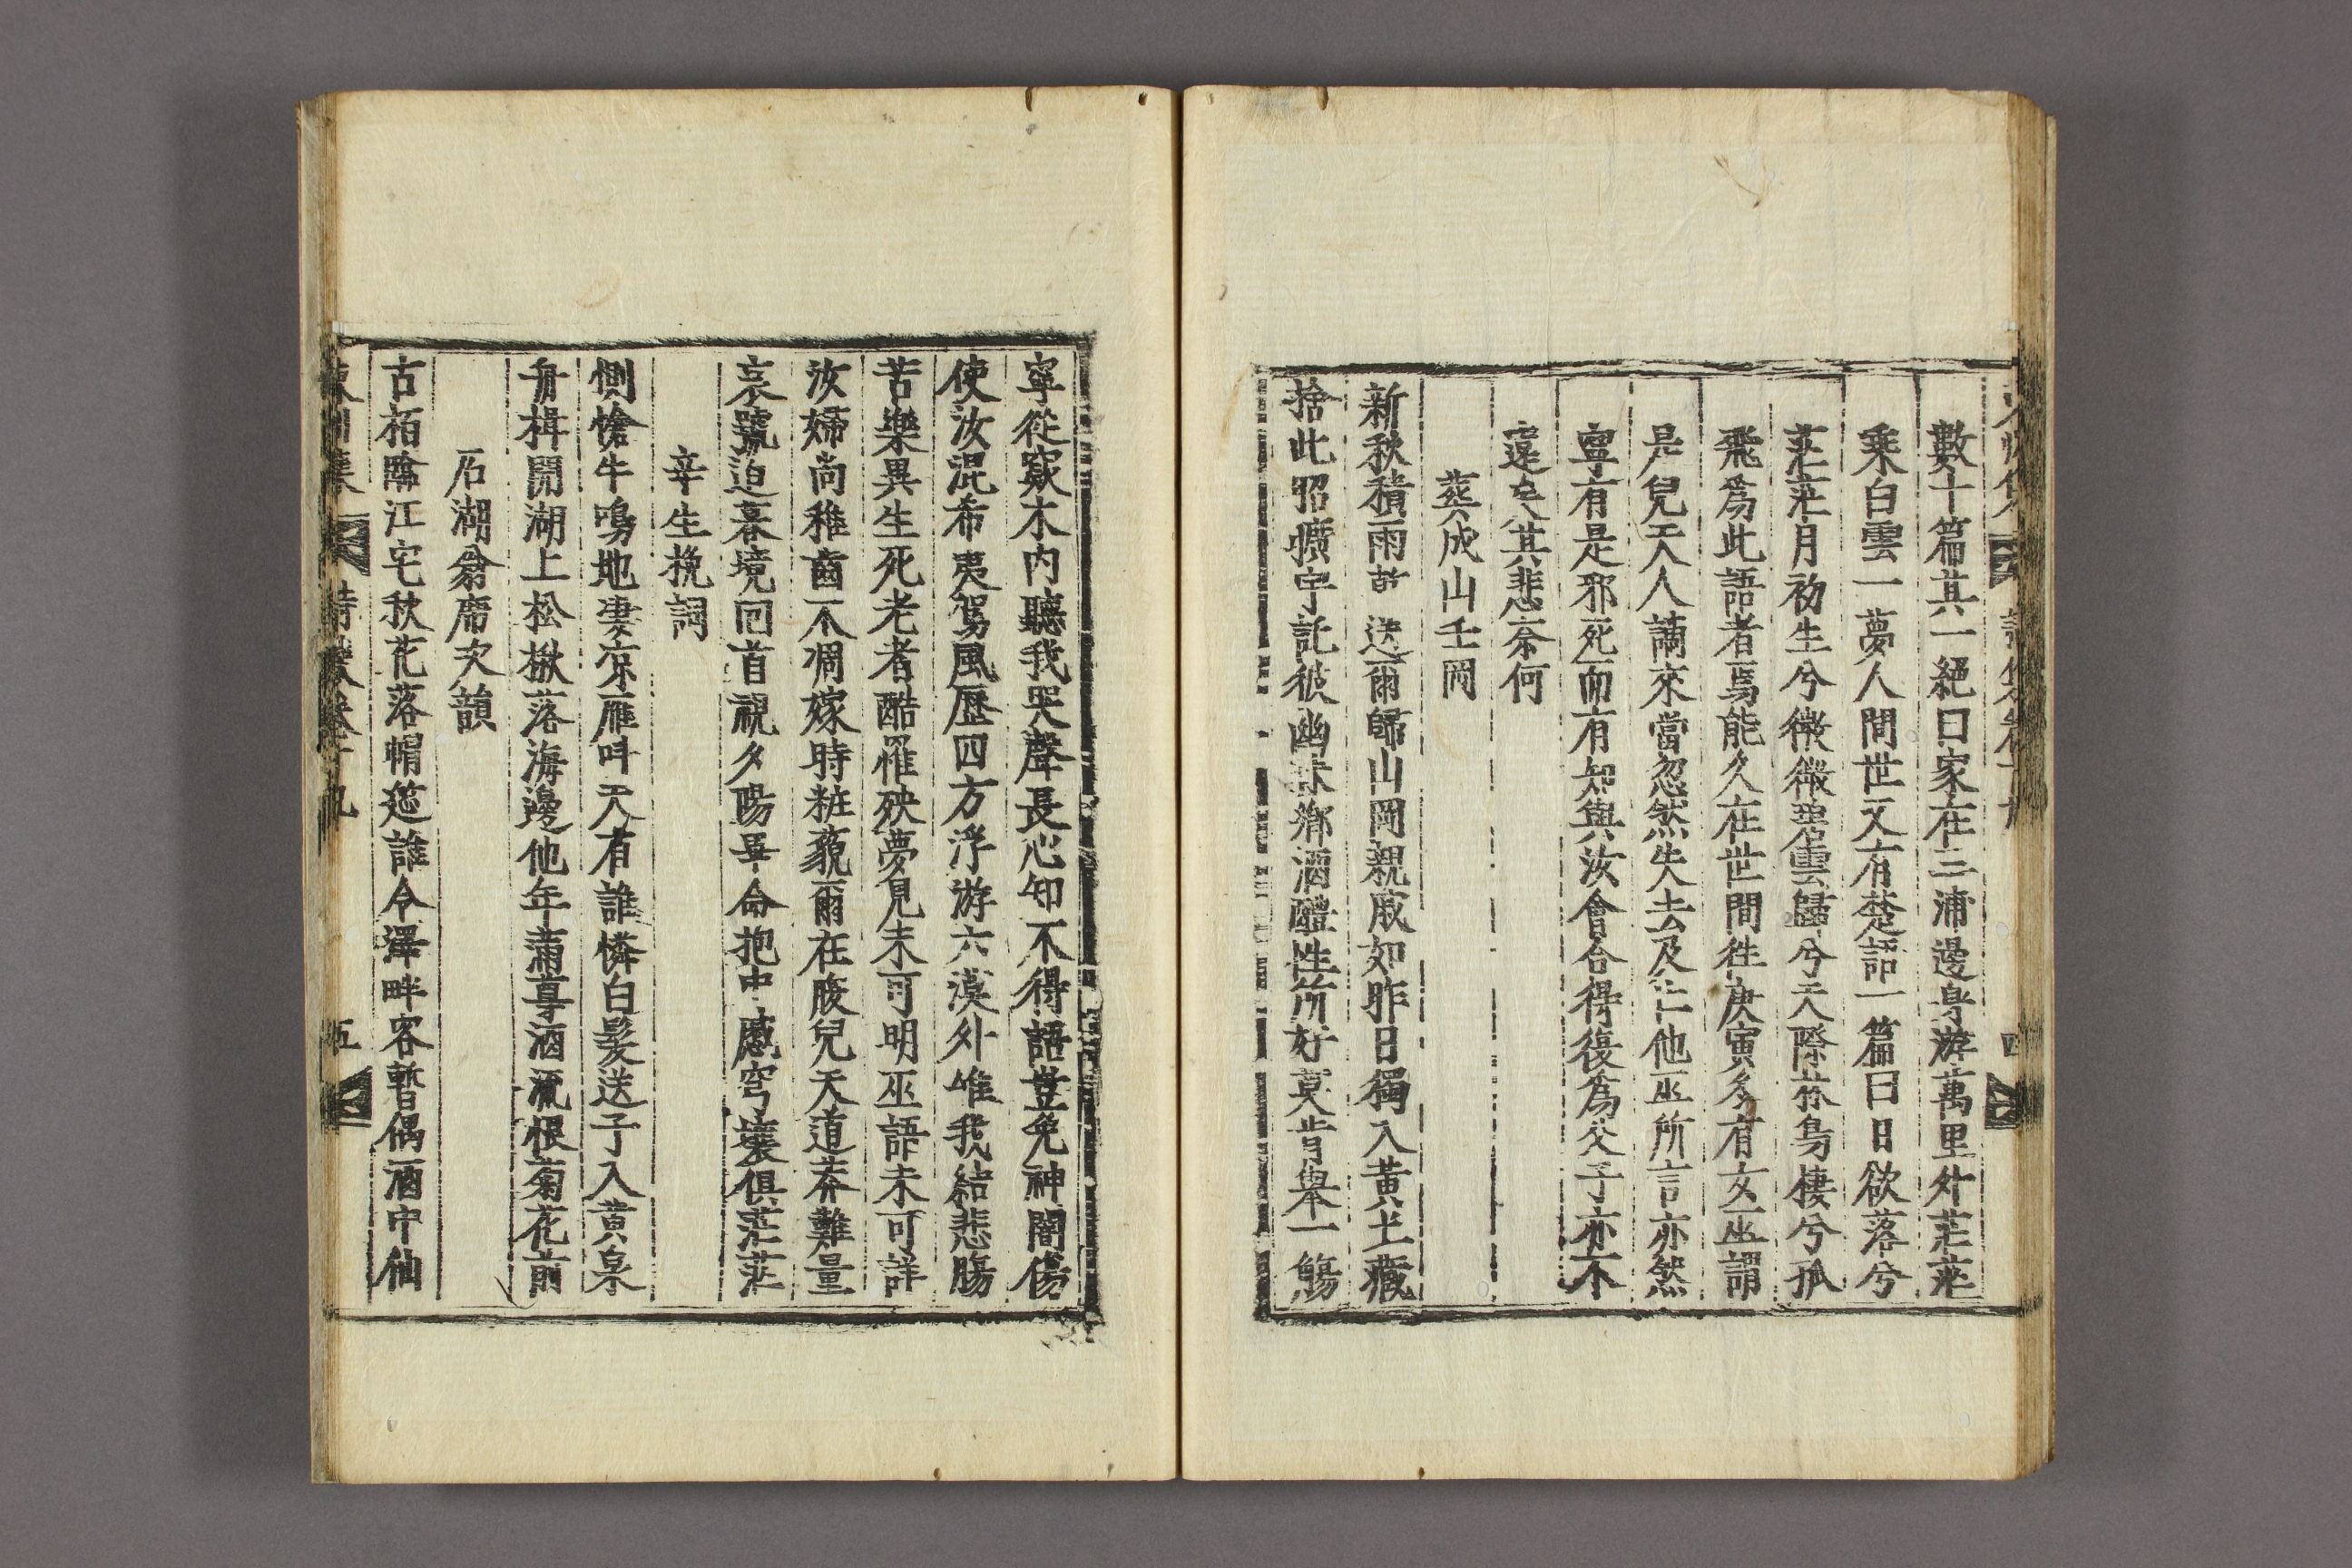 數十篇其一絕曰家在三浦邊身游萬里外茫茫
乘白雲一夢人間世又有楚語一篇曰日欲落兮
茫茫月初生兮微微碧雲歸兮天際林鳥棲兮孤
飛爲此語者焉能久在世間徃庚寅冬有女巫謂
是兒天人謫來當忽然失去及亡他巫所言亦然
寧有是邪死而有知與汝會合得復爲父子亦不
遠矣其悲奈何
葬成山壬岡
新秋積雨乾送爾歸山岡親戚如昨日獨入黃土藏
捨此昭曠宇託彼幽昧鄕酒醴性所好莫肯擧一觴
寧從窾木內聽我哭聲長心知不得語豈免神闇傷
使汝混希夷駕風歷四方浮游六漠外唯我結悲膓
苦樂異生死老者酷罹殃夢見未可明巫語未可詳
汝婦尚稚齒不凋嫁時粧藐爾在腹兒天道莽難量
哀號迫暮境回首視夕陽畢命抱中慼穹壤俱茫茫
辛生挽詞
惻愴牛鳴地凄凉雁呌天有誰憐白髮送子入黃泉
舟楫開湖上松楸落海邊他年蒲蕁酒流恨菊花前
石湖翁席次韻
古栢陰江宅秋花落帽筵誰令澤畔客暫偶酒中仙
詩集卷十九
五
四